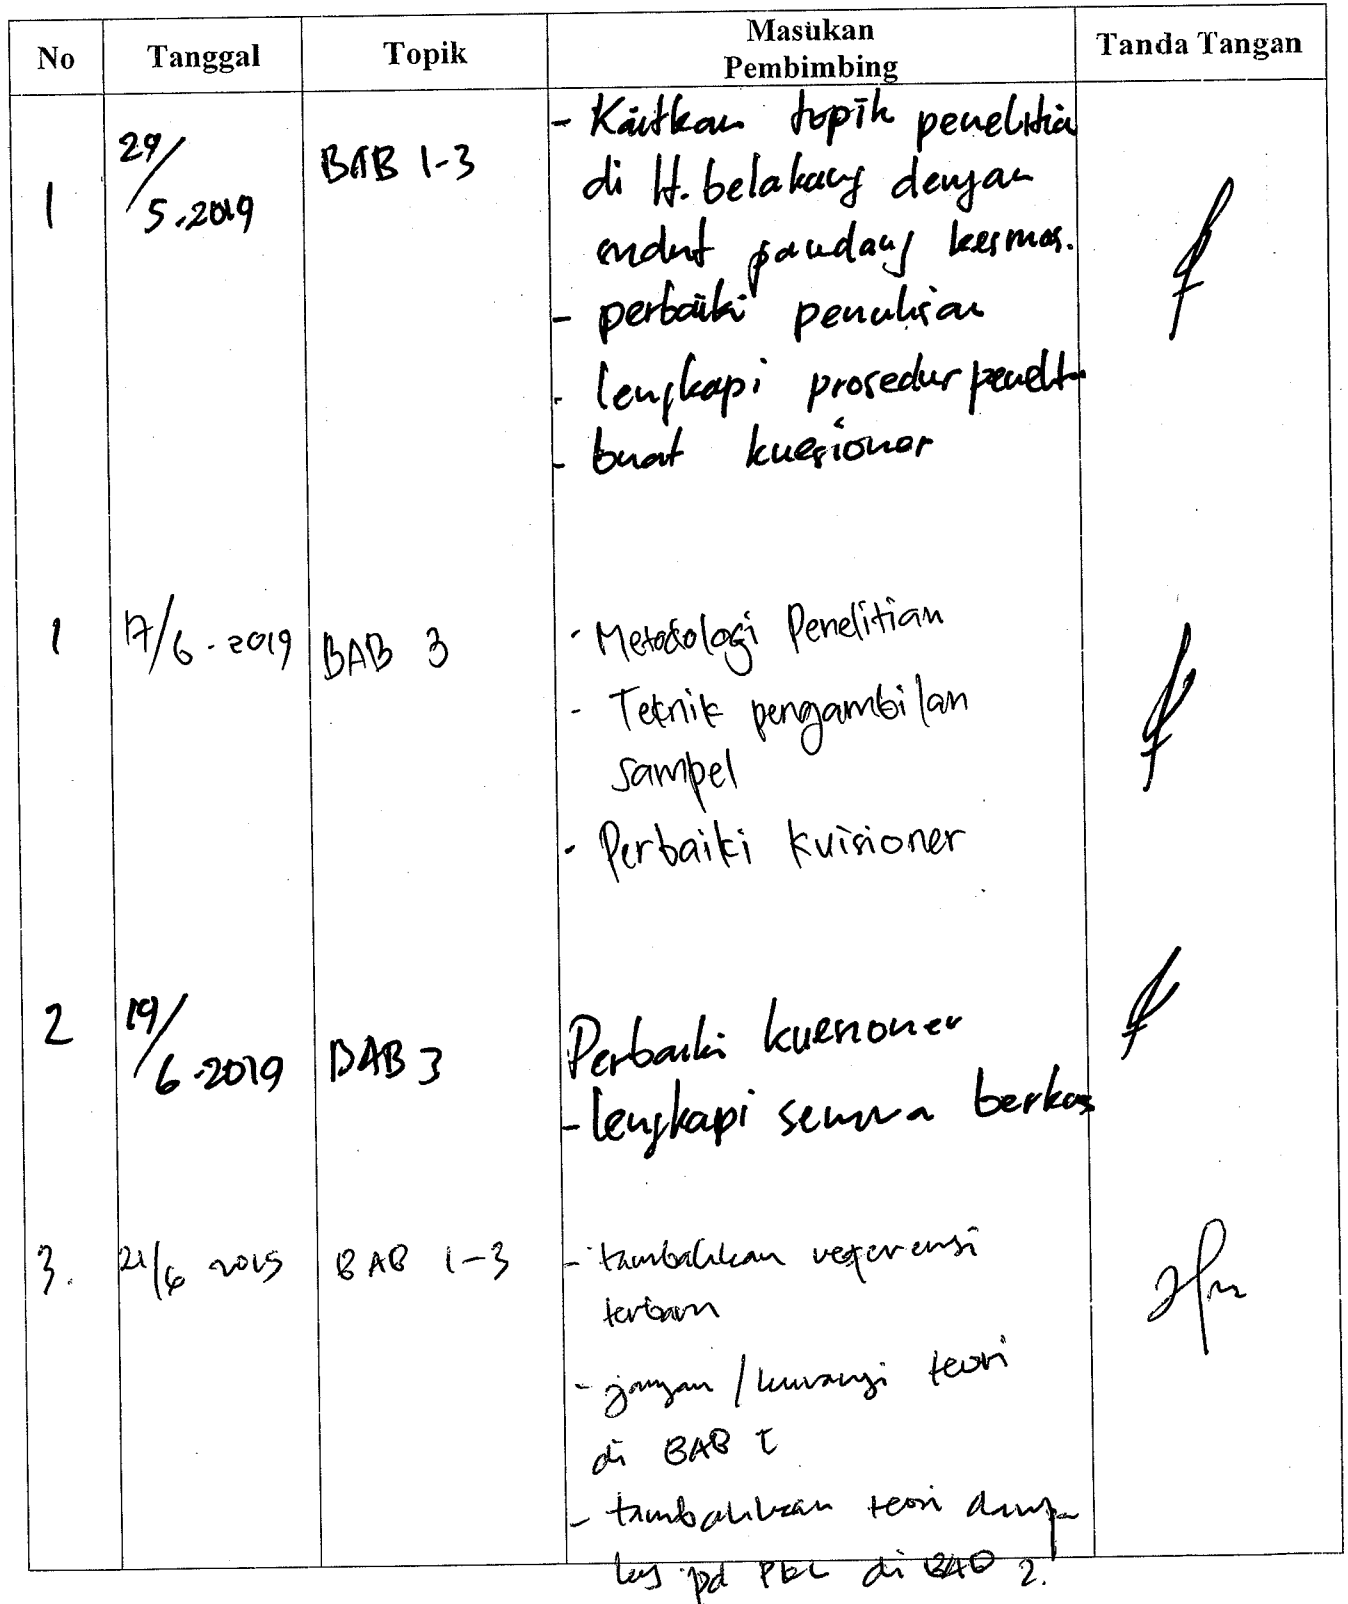 No Tanggal Topik Masukan Pembimbing Tanda Tangan
1 29/5.2019 BAB 1-3 - Kaitkan topik penelitia
di lt. belakang dengan
sudut pandang kesmas.
- perbaiki penulisan
- lengkapi prosedur penelit
- buat kuesioner
1 17/6.2019 BAB 3 - Metodologi Penelitian
- Teknik pengambilan
sampel
- Perbaiki kuisioner
2 19/6.2019 BAB 3 Perbaiki kuesioner
- lengkapi semua berkas
3. 21/6 BAB 1-3 - tambahkan referensi
terbaru
- jangan / kurangi teori
di BAB I
- tambahkan teori
pd PBL di BAB 2.